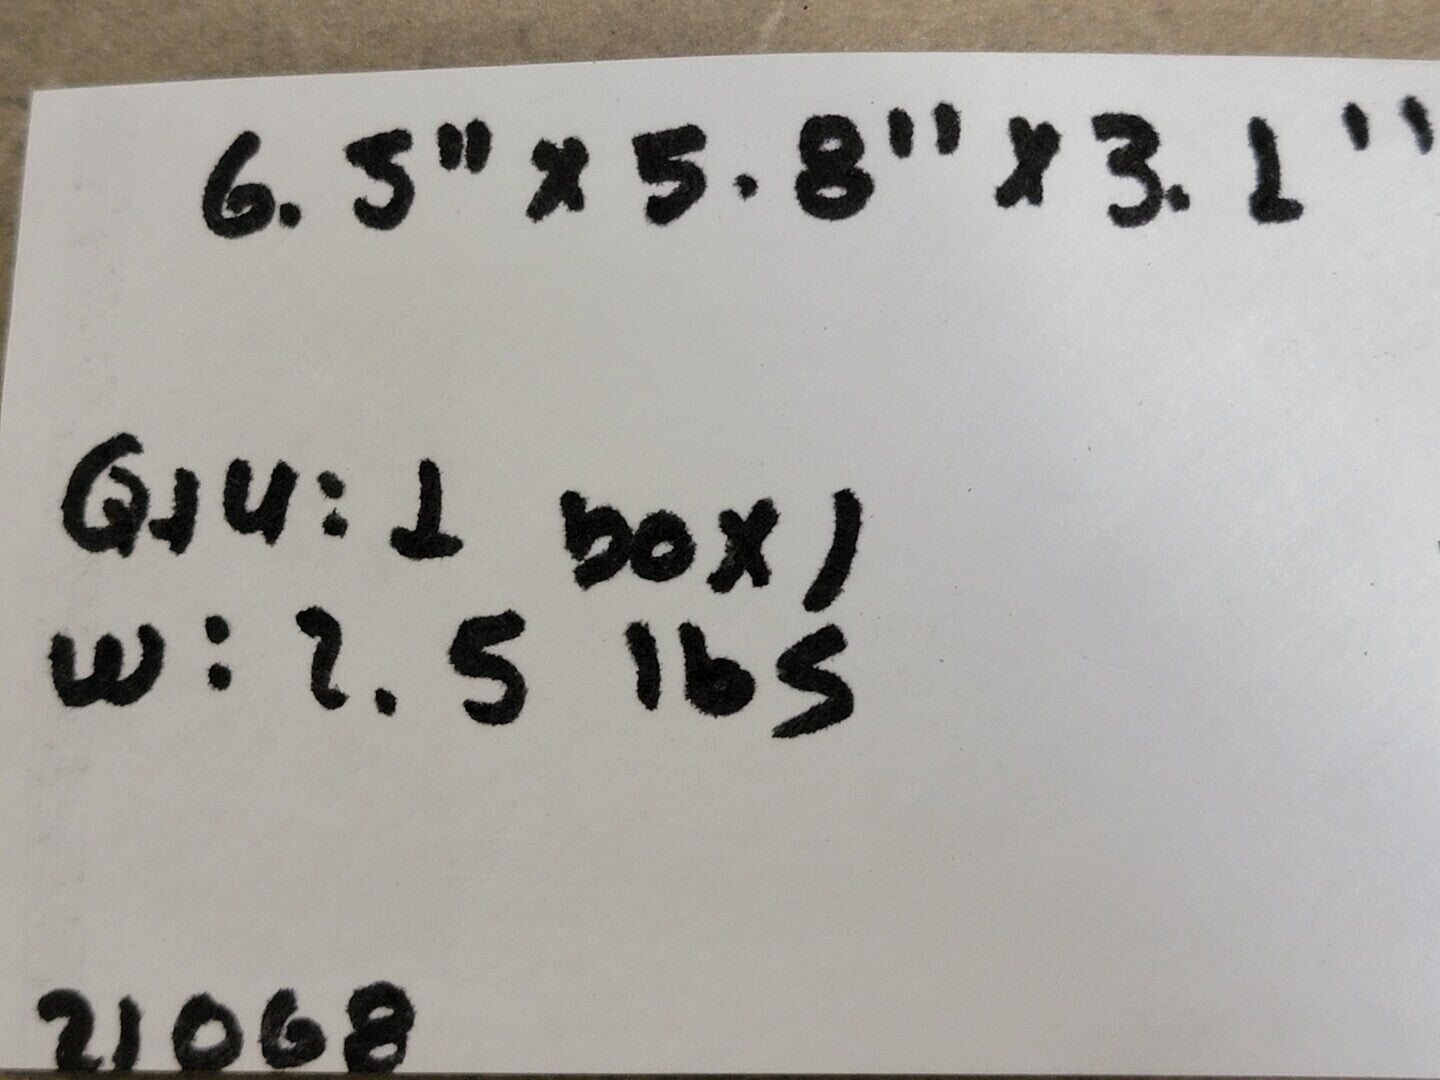 6.5" x 5.8" x 3.1"
Qty: 1 box /
W: 2.5 lbs
21068